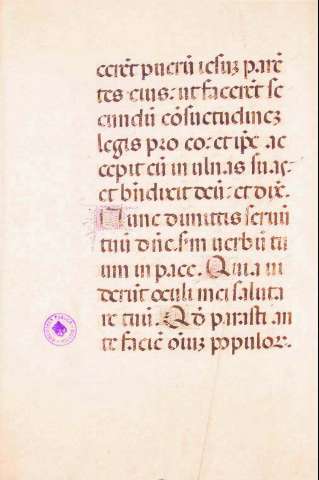 cerēt puerū iesuz parē
tes eius: ut facerēt se
cundū cōsuetudinez
legis pro eo: et ip̄e ac
cepit eū in ulnas suas:
et bn̄dixit deū: et dix̄.
Nunc dimittis seruū
tuū dn̄e: sm̄ uerbū tu
um in pace. Quia ui
derūt oculi mei saluta
re tuū. Qd̄ parasti an
te faciē oīuz populor.